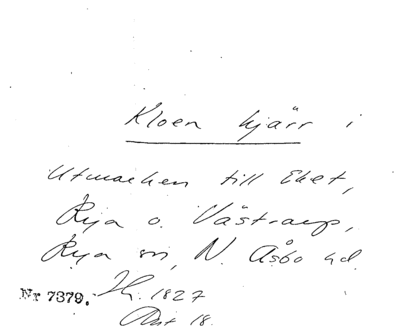 Kloen kjärr i
Utmarken till Eket,
Rya o. Västraup,
Rya sn, N. Åsbo hd.
Nr 7379. 1827
18